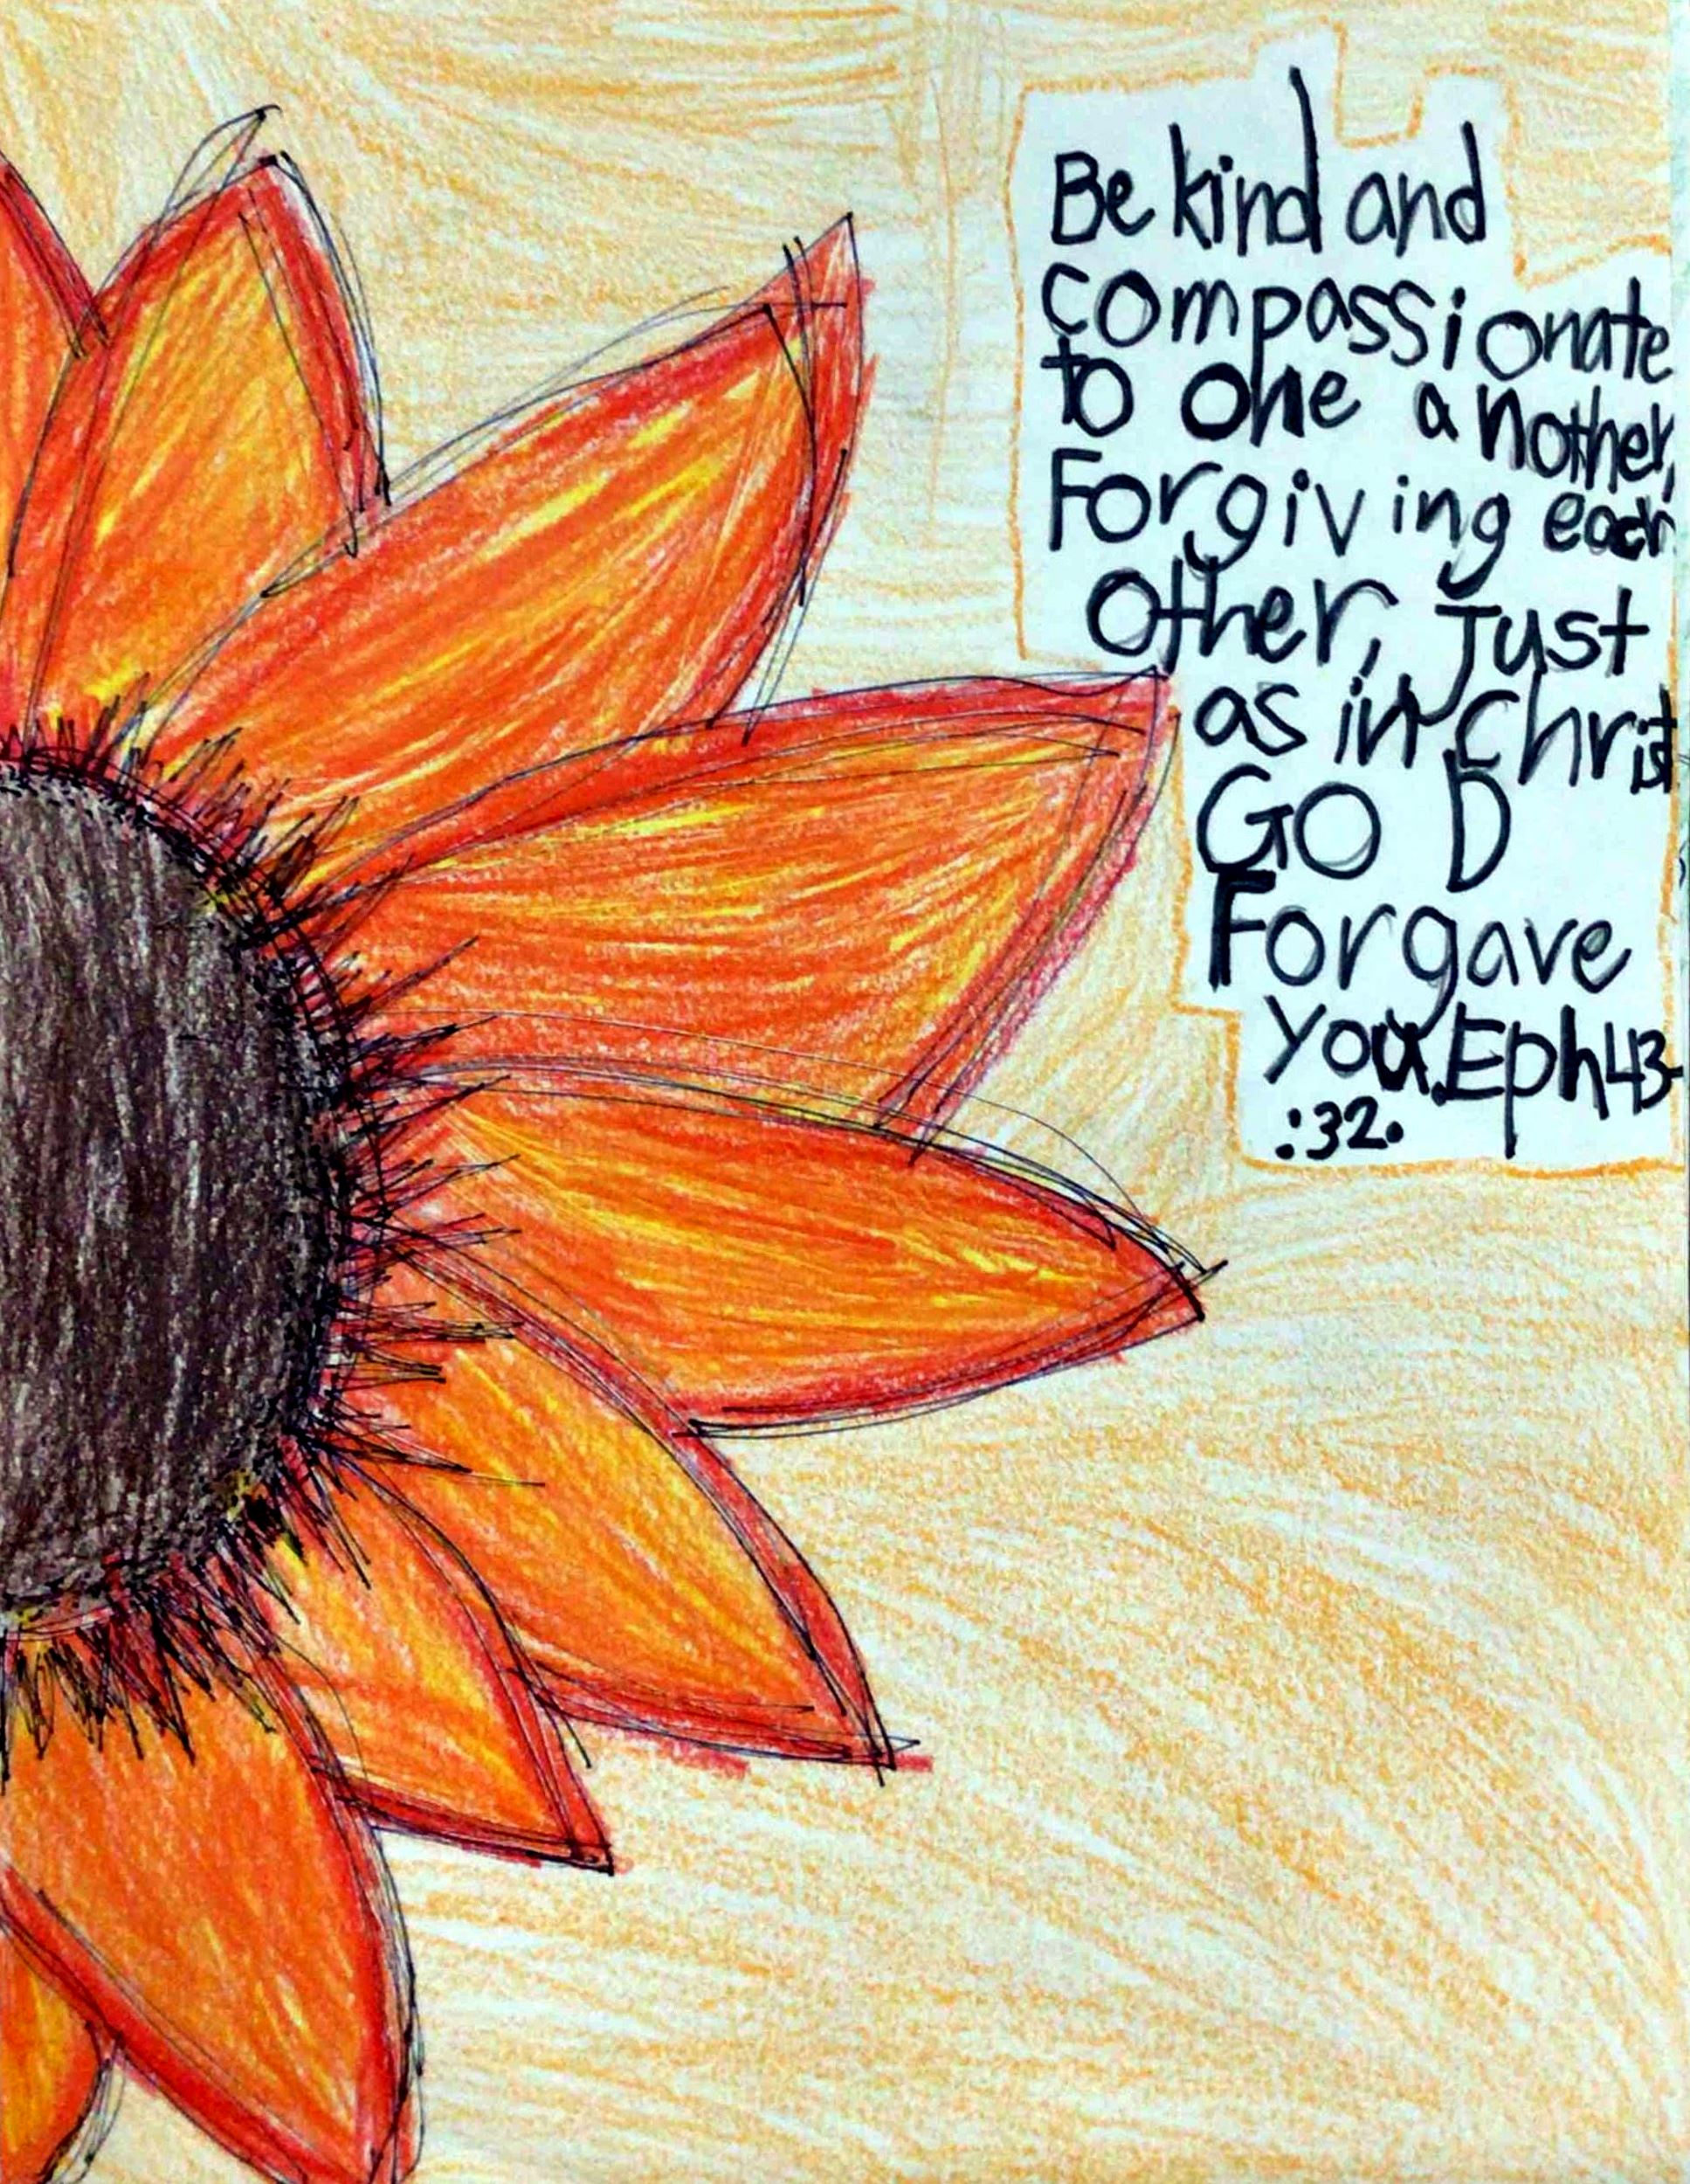 Be kind and
compassionate
to one another,
Forgiving each
other, Just
as in Christ
GOD
Forgave
you. Eph 43-
:32.